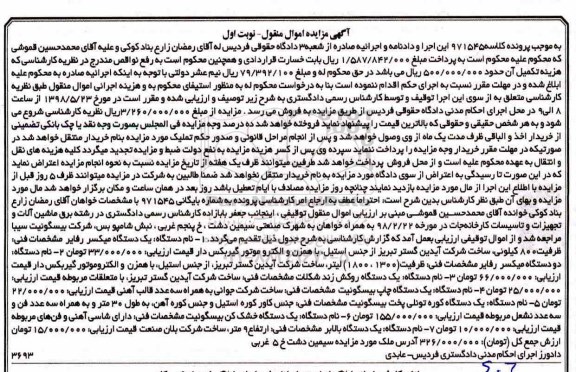 آگهی مزایده اموال منقول- نوبت اول
به موجب پرونده کلاسه۹۷۱۵۴۵ این اجرا و دادنامه و اجرائیه صادره از شعبه۳ دادگاه حقوقی فردیس له آقای رمضان زارع بناد کوکی و علیه آقای محمدحسین قموشی
که محکوم علیه محکوم است به پرداخت مبلغ ۱/۵۸۷/۸۴۲/۰۰۰ ریال بابت خسارت قراردادی و همچنین محکوم است به رفع نواقص مندرج در نظریه کارشناسی که
هزینه تکمیل آن حدود ۵۰۰/۰۰۰/۰۰۰ ریال می باشد در حق محکوم له و مبلغ ۷۹/۳۹۲/۱۰۰ ریال نیم عشر دولتی با توجه به اینکه اجرائیه صادره به محکوم علیه
ابلاغ شده و در مهلت مقرر نسبت به اجرای حکم اقدام ننموده است بنا به درخواست محکوم له به منظور استیفای محکوم به و هزینه اجرائی اموال منقول طبق نظریه
کارشناسی متعلق به از سوی این اجرا توقیف و توسط کارشناس رسمی دادگستری به شرح زیر توصیف و ارزیابی شده و مقرر است در مورخ۱۳۹۸/۵/۲۳ از ساعت
۸ الی۹ در محل اجرای احکام مدنی دادگاه حقوقی فردیس از طریق مزایده به فروش می رسد . مزایده از مبلغ ۳/۲۶۰/۰۰۰/۰۰۰ریال نظریه کارشناسی شروع می
شود و به هر شخص حقیقی و حقوقی که بالاترین قیمت را پیشنهاد نماید فروخته خواهد شد ده درصد وجه مزایده فی المجلس بصورت وجه نقد یا چک بانکی تضمینی
از خریدار اخذ و الباقی ظرف مدت یک ماه از وی وصول خواهد شد و پس از انجام مراحل قانونی و صدور حکم تملیک مورد مزایده بنام خریدار منتقل خواهد شد در
صورتیکه در مهلت مقرر خریدار وجه مزایده را پرداخت ننماید سپرده وی پس از کسر هزینه مزایده به نفع دولت ضبط و مزایده تجدید میگردد کلیه هزینه های نقل
و انتقال به عهده محکوم علیه است و از محل فروش پرداخت خواهد شد طرفین میتوانند ظرف یک هفته از تاریخ مزایده نسبت به نحوه انجام مزایده اعتراض نماید
که در این صورت تا رسیدگی به اعتراض از سوی دادگاه مورد مزایده به نام خریدار منتقل نخواهد شد ضمنا طالبین به شرکت در مزایده میتوانند ظرف ۵ روز قبل از
مزایده با اطلاع این اجرا از مال مورد مزایده بازدید نمایند چنانچه روز مزایده مصادف با ایام تعطیل باشد روز بعد در همان ساعت و مکان برگزار خواهد شد مال مورد
مزایده و بهای آن طبق نظر کارشناس بدین شرح است: احتراما عطف به ارجاع امر کارشناسی پرونده به شماره بایگانی ۹۷۱۵۴۵ با مشخصات خواهان آقای رمضان زارع
بناد کوکی خوانده آقای محمدحسین قموشی مبنی بر ارزیابی اموال منقول توقیفی ، اینجانب جعفر بابازاده کارشناس رسمی دادگستری در رشته برق ماشین آلات و
تجهیزات و تاسیسات کارخانجات در مورخه ۹۸/۲/۲۲ به همراه خواهان به شهرک صنعتی سیمین دشت ، خ پنجم غربی ، نبش شامپو بس، شرکت بیسگوئیت سیبا
مراجعه شد و از اموال توقیفی ارزیابی بعمل آمد که گزارش کارشناسی به شرح جدول ذیل تقدیم میگردد. ۱- نام دستگاه: یک دستگاه میکسر رفایر مشخصات فنی:
ظرفیت ۸۰ کیلویی، ساخت شرکت آیدین گستر تبریز از جنس استیل، با همزن و الکترو موتور گیربکس دار قیمت ارزیابی: ۳۳/۰۰۰/۰۰۰ تومان ۲- نام دستگاه:
دو دستگاه میکسر رفایر مشخصات فنی: ظرفیت(۱۳۰۰، ۱۸۰۰) لیتر، ساخت شرکت آیدین گستر تبریز، از جنس استیل، با همزن و الکتروموتور گیربکس دار قیمت
ارزیابی: ۶۶/۰۰۰/۰۰۰ تومان ۳- نام دستگاه: یک دستگاه روکش زند شکلات مشخصات فنی: ساخت شرکت آیدین گستر تبریز، با متعلقات مربوطه قیمت ارزیابی:
۲۵/۰۰۰/۰۰۰ تومان ۴- نام دستگاه: یک دستگاه چاپ بیسگوئیت مشخصات فنی: ساخت شرکت جوانی به همراه سه عدد قالب آهنی قیمت ارزیابی: ۲۲/۰۰۰/۰۰۰
تومان ۵- نام دستگاه: یک دستگاه کوره تونلی پخت بیسگوئیت مشخصات فنی: جنس کاور کوره استیل و جنس کوره آهن، به طول ۳۰ متر و به همراه سه عدد فن و
سه عدد نشعل مربوطه قیمت ارزیابی: ۱۵۵/۰۰۰/۰۰۰ تومان ۶- نام دستگاه: یک دستگاه خشک کن بیسگوئیت مشخصات فنی: دارای شاسی آهنی و فن‌های مربوطه
قیمت ارزیابی: ۱۰/۰۰۰/۰۰۰ تومان ۷- نام دستگاه: یک دستگاه بالابر مشخصات فنی: ارتفاع۹ متر، ساخت شرکت بلان صنعت قیمت ارزیابی: ۱۵/۰۰۰/۰۰۰ تومان
ارزش جمع کل (تومان): ۳۲۶/۰۰۰/۰۰۰ آدرس ملک مورد مزایده سیمین دشت خ ۵ غربی
دادورز اجرای احکام مدنی دادگستری فردیس- عابدی
۳۶۹۳